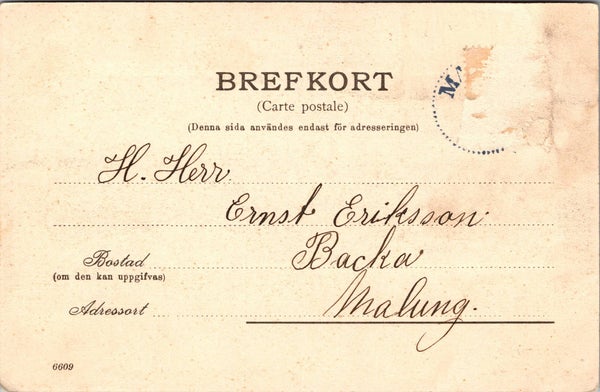 BREFKORT
(Carte postale)
(Denna sida användes endast för adresseringen)
MA
H. Herr
Ernst Eriksson.
Bostad Backa
(om den kan uppgifvas)
Adressort Malung.
6609